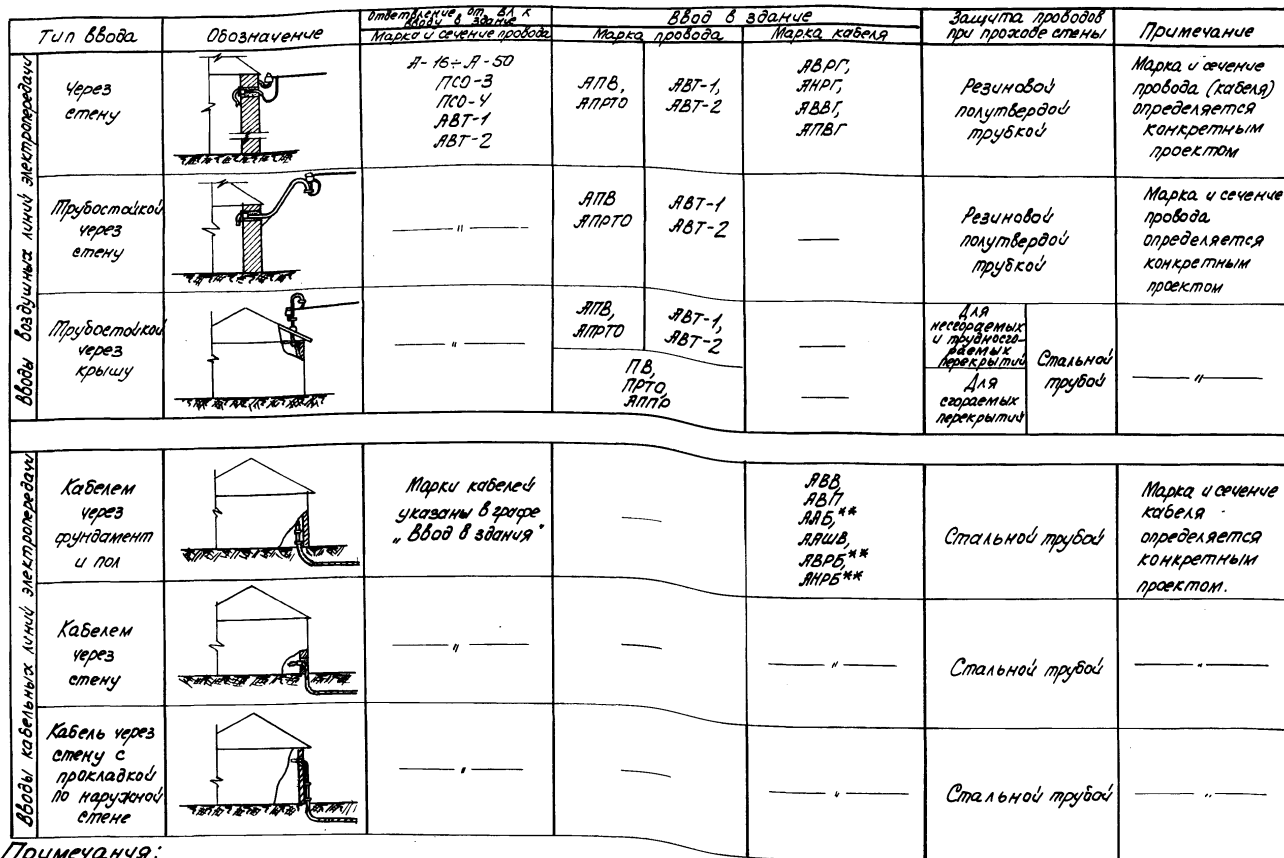 Тип ввода
Обозначение
Ответвление от ВЛ к
вводу в здание
Марка и сечение провода
Ввод в здание
Марка провода
Марка кабеля
Защита проводов
при проходе стены
Примечание
Вводы воздушных линий электропередачи
Через
стену
А-16÷А-50
ПСО-3
ПСО-4
АВТ-1
АВТ-2
АПВ,
АПРТО
АВТ-1,
АВТ-2
АВРГ,
АНРГ,
АВВГ,
АПВГ
Резиновой
полутвердой
трубкой
Марка и сечение
провода (кабеля)
определяется
конкретным
проектом
Трубостойкой
через
стену
— " —
АПВ
АПРТО
АВТ-1
АВТ-2
—
Резиновой
полутвердой
трубкой
Марка и сечение
провода
определяется
конкретным
проектом
Трубостойкой
через
крышу
— " —
АПВ,
АПРТО
АВТ-1,
АВТ-2
ПВ,
ПРТО,
АППР
—
—
Для
несгораемых
и трудносго-
раемых
перекрытий
Для
сгораемых
перекрытий
Стальной
трубой
— " —
Вводы кабельных линий электропередачи
Кабелем
через
фундамент
и пол
Марки кабелей
указаны в графе
„Ввод в здания"
—
АВВ,
АВП
ААБ,**
ААШВ,
АВРБ,**
АНРБ**
Стальной трубой
Марка и сечение
кабеля
определяется
конкретным
проектом.
Кабелем
через
стену
— " —
—
— " —
Стальной трубой
— " —
Кабель через
стену с
прокладкой
по наружной
стене
— " —
—
— " —
Стальной трубой
— " —
Примечания: